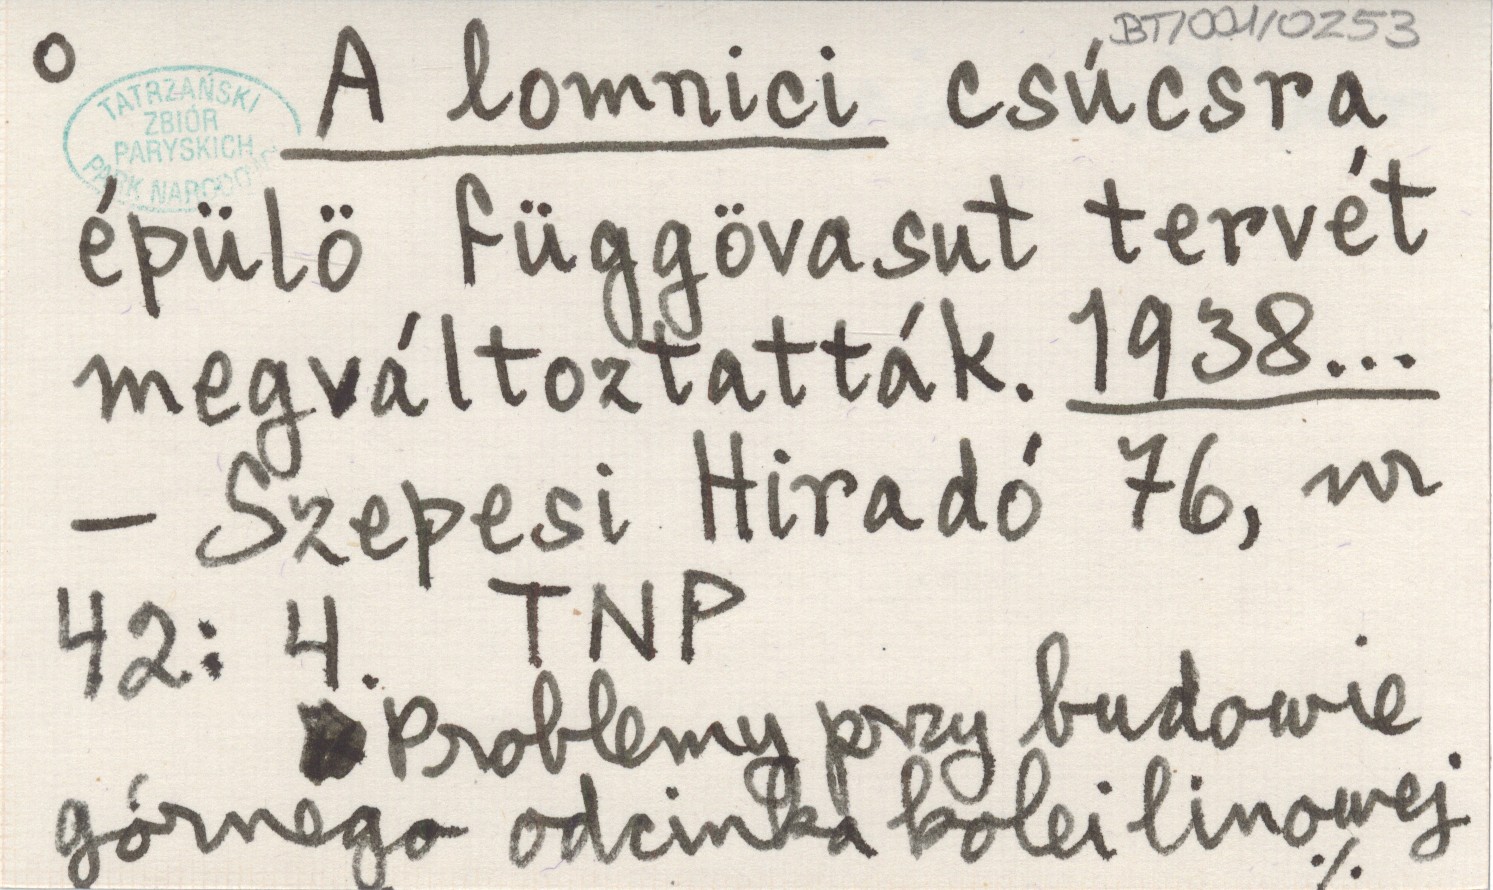 BT/001/0253
o
TATRZAŃSKI
ZBIÓR
PARYSKICH
PARK NARODOWY
A lomnici csúcsra
épülö függövasut tervét
megváltoztatták. 1938...
– Szepesi Hiradó 76, nr
42: 4. TNP
Problemy przy budowie
górnego odcinka kolei linowej
./.